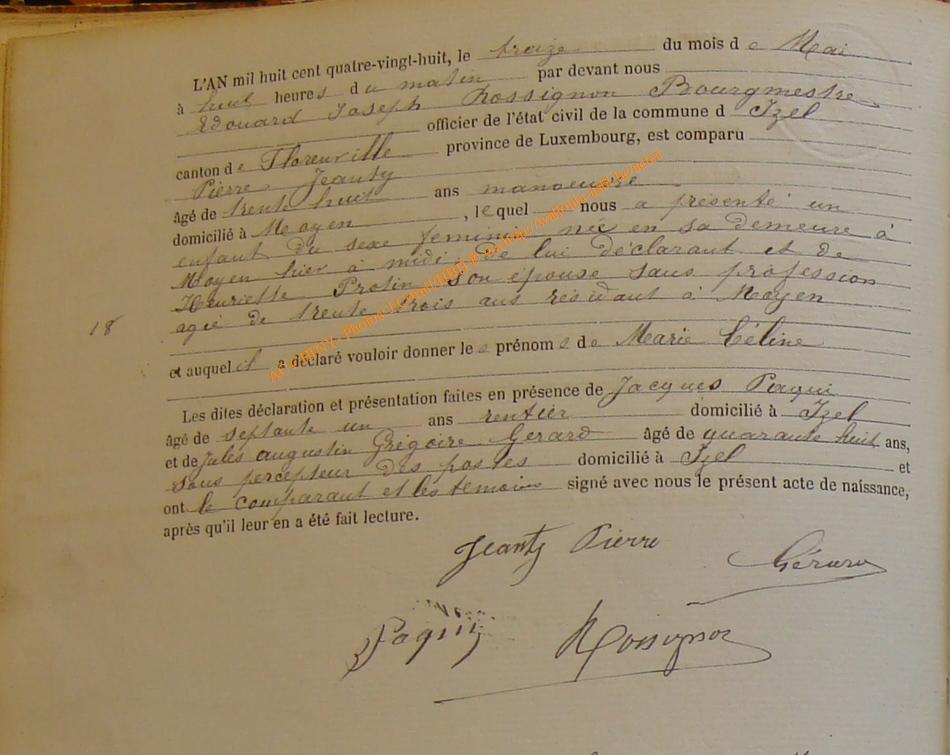 L'AN mil huit cent quatre-vingt-huit, le treize du mois de Mai
à huit heures du matin par devant nous
Edouard Joseph Rossignon Bourgmestre
officier de l'état civil de la commune d Izel
canton de Florenville province de Luxembourg, est comparu
Pierre Jeanty
âgé de trente huit ans manoeuvre
domicilié à Moyen, lequel nous a présenté un
enfant du sexe féminin née en sa demeure à
Moyen hier à midi, De lui déclarant et de
Henriette Protin son épouse sans profession
agée de trente trois ans résidant à Moyen
18
et auquel il a déclaré vouloir donner les prénoms de Marie Céline
Les dites déclaration et présentation faites en présence de Jacques Paqui
âgé de septante un ans rentier domicilié à Izel
et de Jules augustin Grégoire Gerard âgé de quarante huit ans,
sous percepteur des postes domicilié à Izel et
ont le comparant et les temoins signé avec nous le présent acte de naissance,
après qu'il leur en a été fait lecture.
Jeanty Pierre
Gérard
Paquij
Rossignon